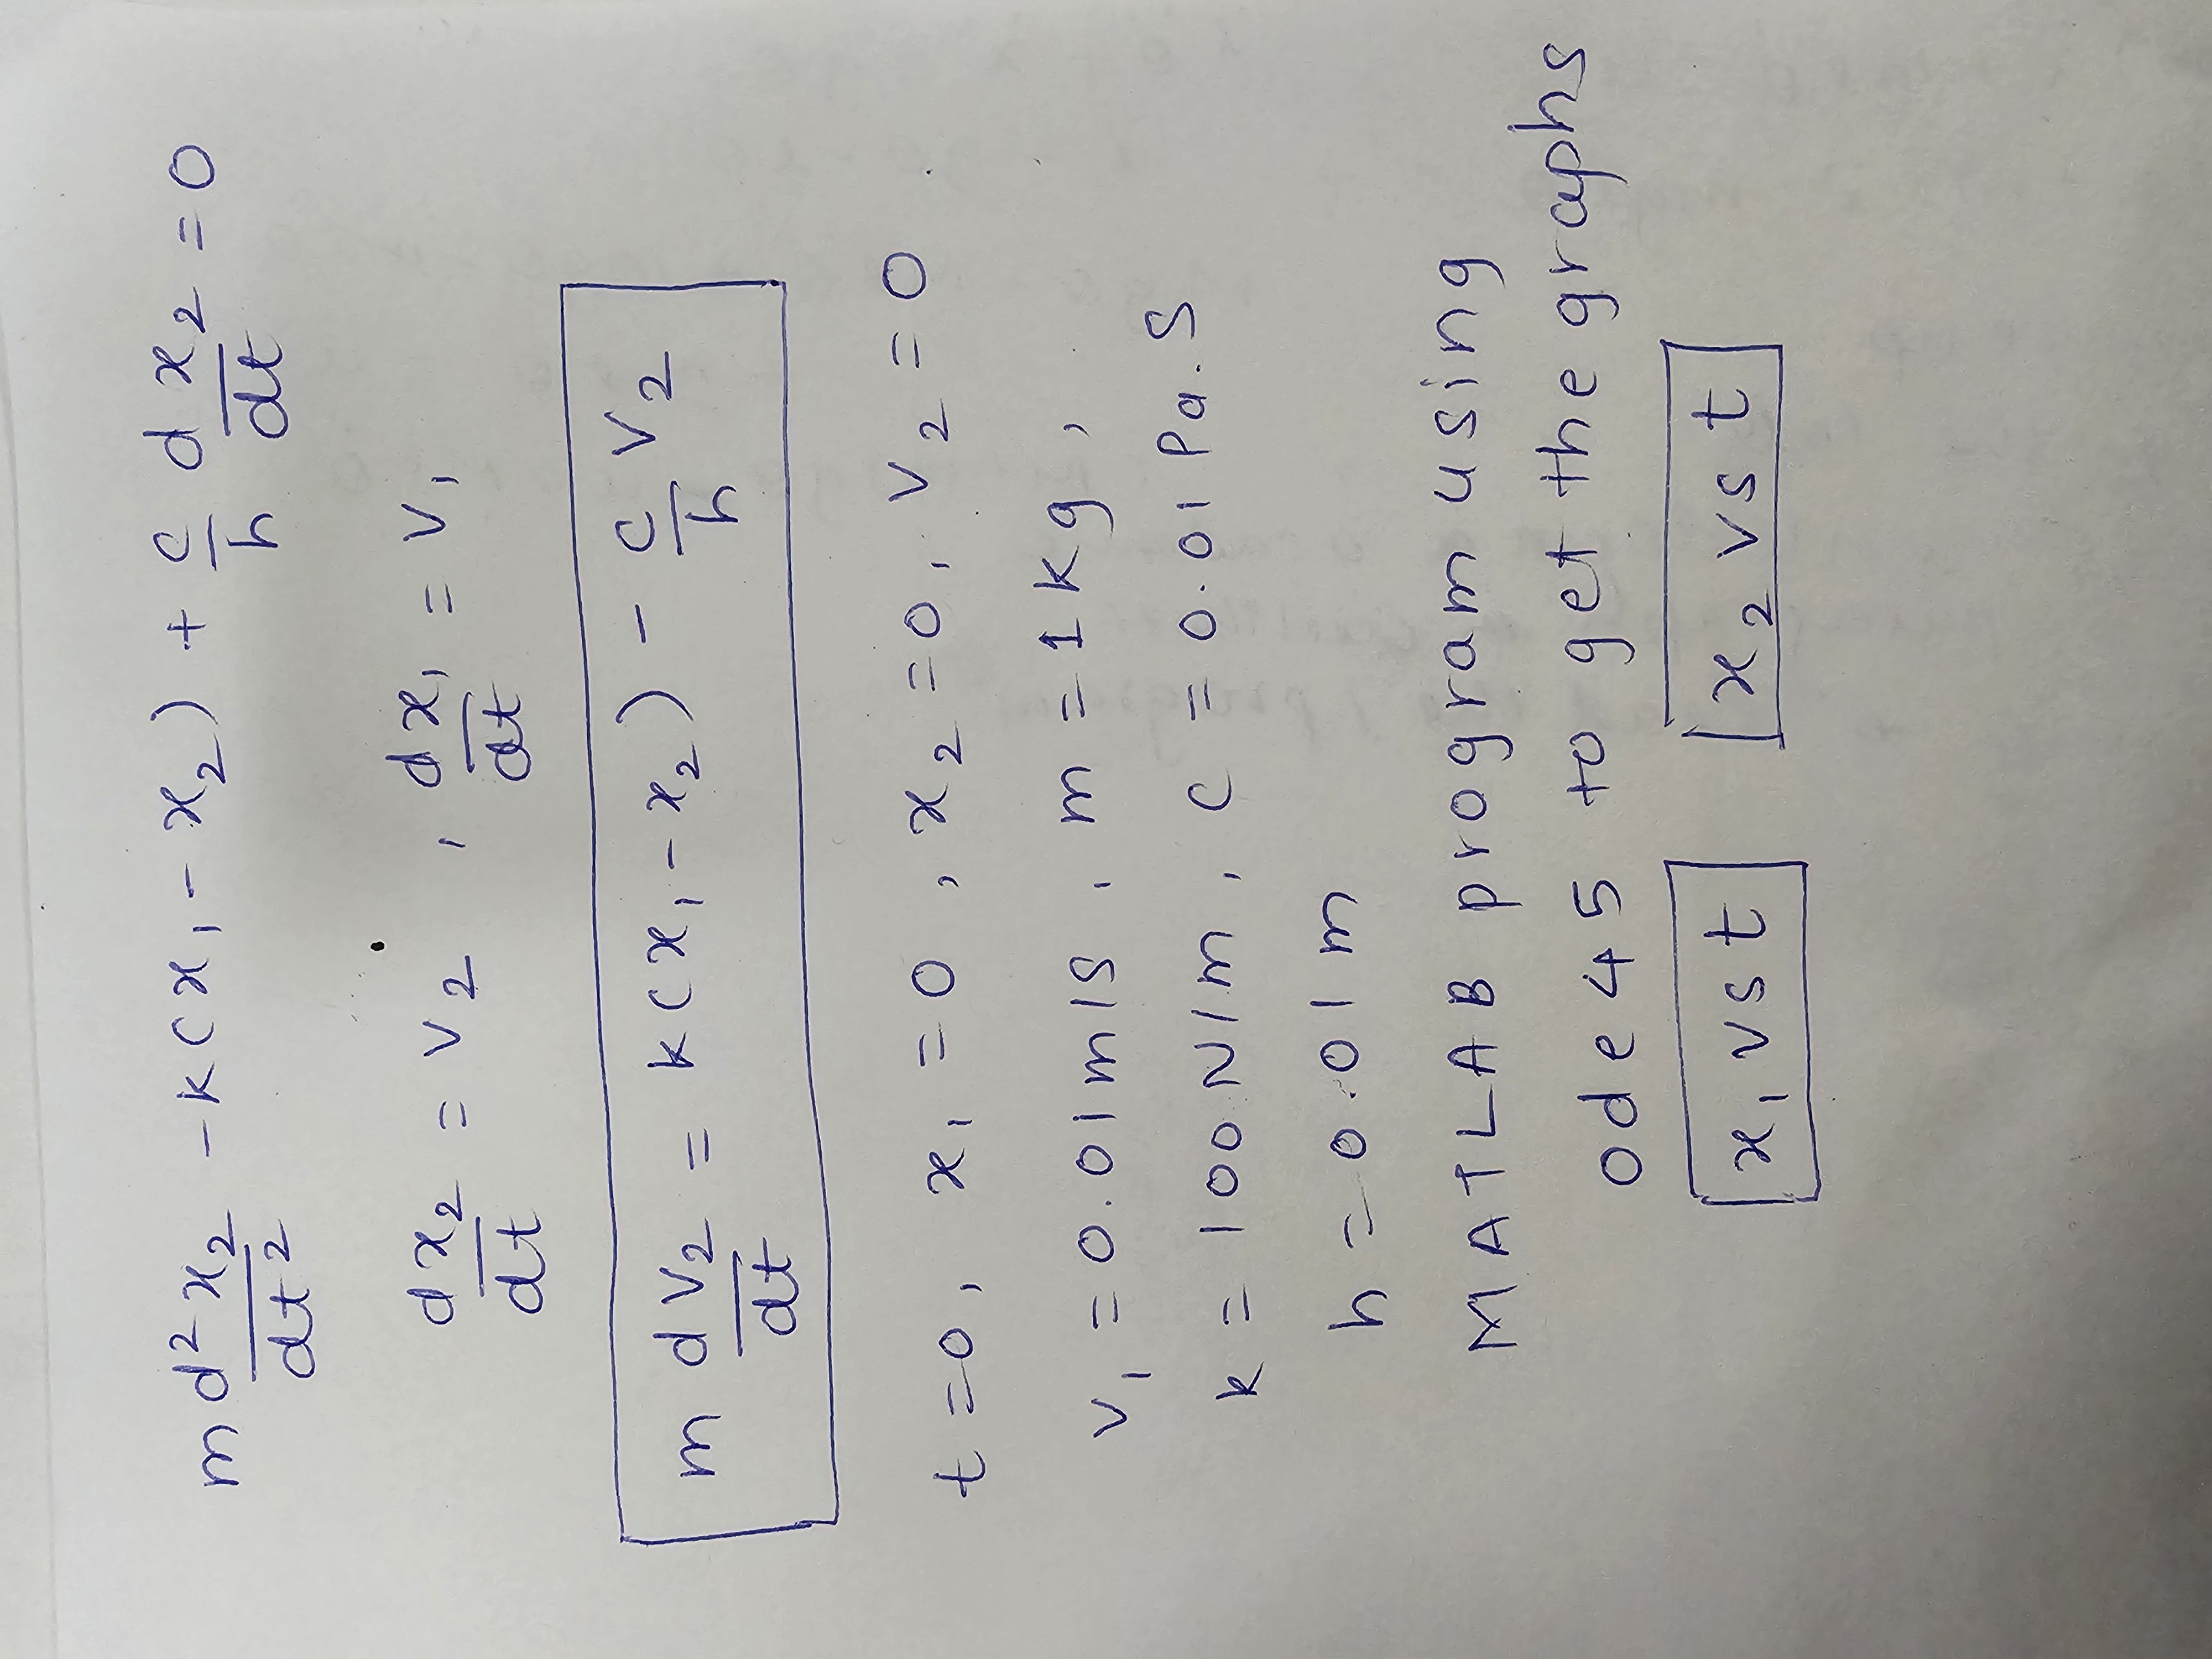 m d²x₂/dt² - k(x₁ - x₂) + c/h dx₂/dt = 0
dx₂/dt = v₂ , dx₁/dt = v₁
m dv₂/dt = k(x₁ - x₂) - c/h v₂
t = 0, x₁ = 0, x₂ = 0, v₂ = 0
v₁ = 0.01 m/s, m = 1 kg,
k = 100 N/m, c = 0.01 Pa.s
h = 0.01 m
MATLAB program using
ode45 to get the graphs
x₁ vs t x₂ vs t